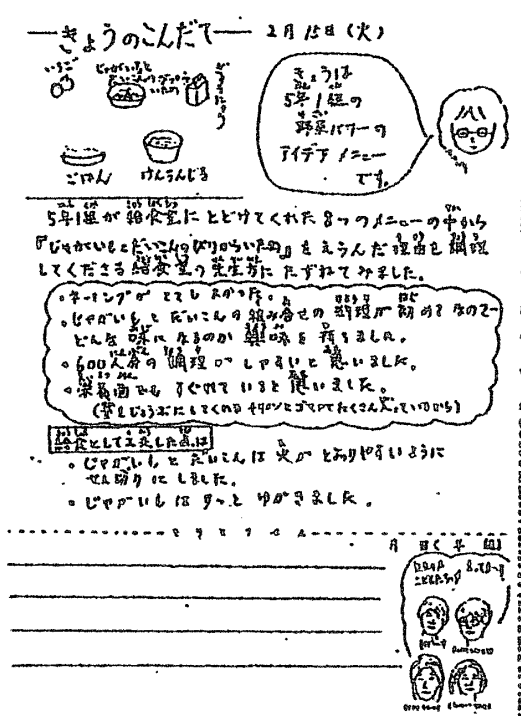 きょうのこんだて 2月15日(火)
いちご
じゃがいもと
だいこんの
いため
ぎゅうにゅう
ごはん
けんちんじる
きょうは
5年1組の
野菜パワーの
アイデアメニュー
です。
5年1組が給食室にとどけてくれた8つのメニューの中から
『じゃがいもとだいこんのぴりからいため』をえらんだ理由を調理
してくださる給食室の先生方にたずねてみました。
・ネーミングがとてもよかった。
・じゃがいもとだいこんの組み合せの調理が初めてなので
どんな味になるのか興味を持ちました。
・600人分の調理がしやすいと思いました。
・栄養面でもすぐれていると思いました。
給食として工夫した点は
・じゃがいもとだいこんは火がとおりやすいように
せん切りにしました。
・じゃがいもはサッとゆがきました。
月 日( ) 年 組